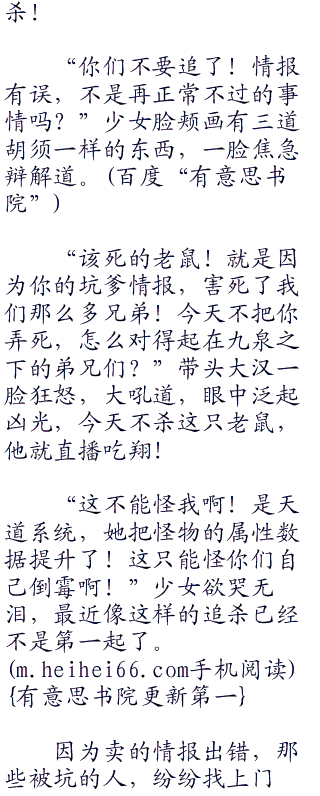 杀！
“你们不要追了！情报
有误，不是再正常不过的事
情吗？”少女脸颊画有三道
胡须一样的东西，一脸焦急
辩解道。(百度“有意思书
院”)
“该死的老鼠！就是因
为你的坑爹情报，害死了我
们那么多兄弟！今天不把你
弄死，怎么对得起在九泉之
下的弟兄们？”带头大汉一
脸狂怒，大吼道，眼中泛起
凶光，今天不杀这只老鼠，
他就直播吃翔！
“这不能怪我啊！是天
道系统，她把怪物的属性数
据提升了！这只能怪你们自
己倒霉啊！”少女欲哭无
泪，最近像这样的追杀已经
不是第一起了。
(m.heihei66.com手机阅读)
{有意思书院更新第一}
因为卖的情报出错，那
些被坑的人，纷纷找上门